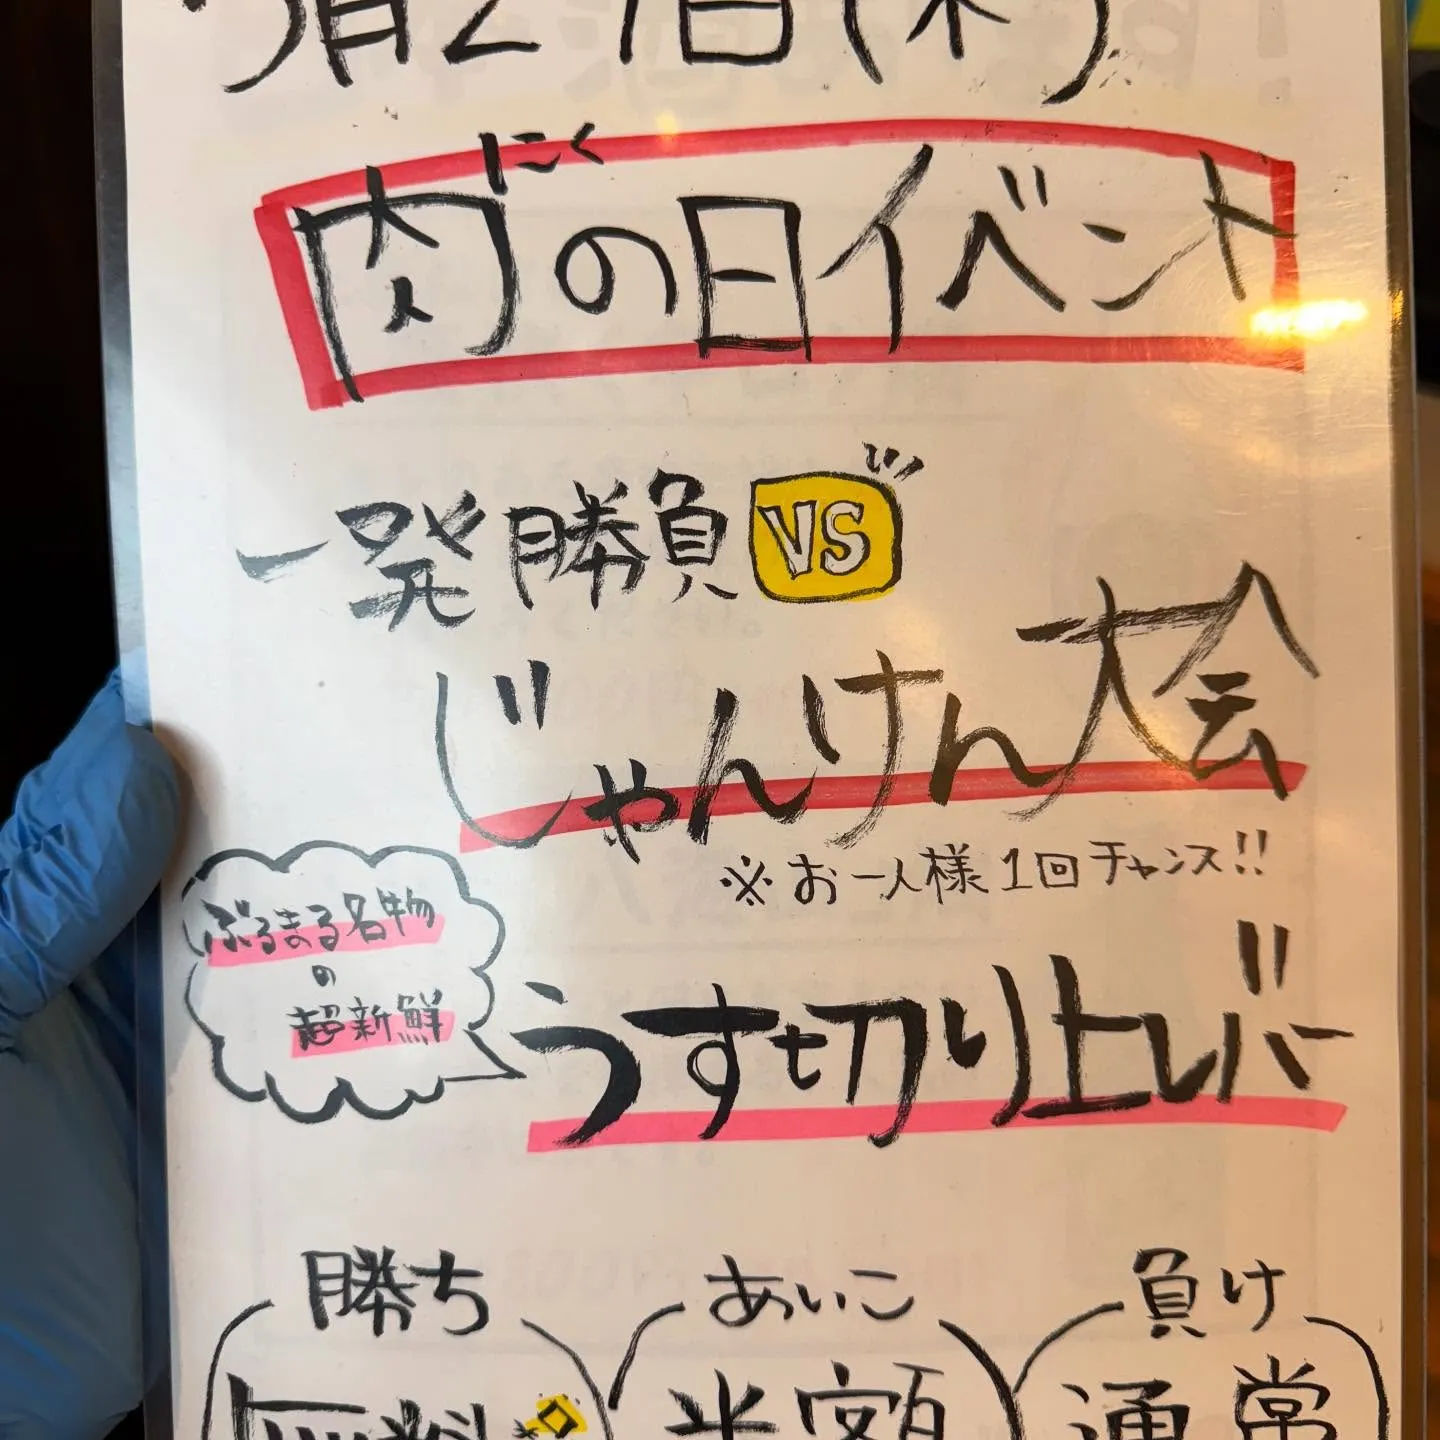 月29日(木)
にく
肉の日イベント
一発勝負VS
じゃんけん大会
※お一人様1回チャンス!!
ぶるまる名物
の
超新鮮
うす切り上レバー
勝ち あいこ 負け
無料 半額 通常